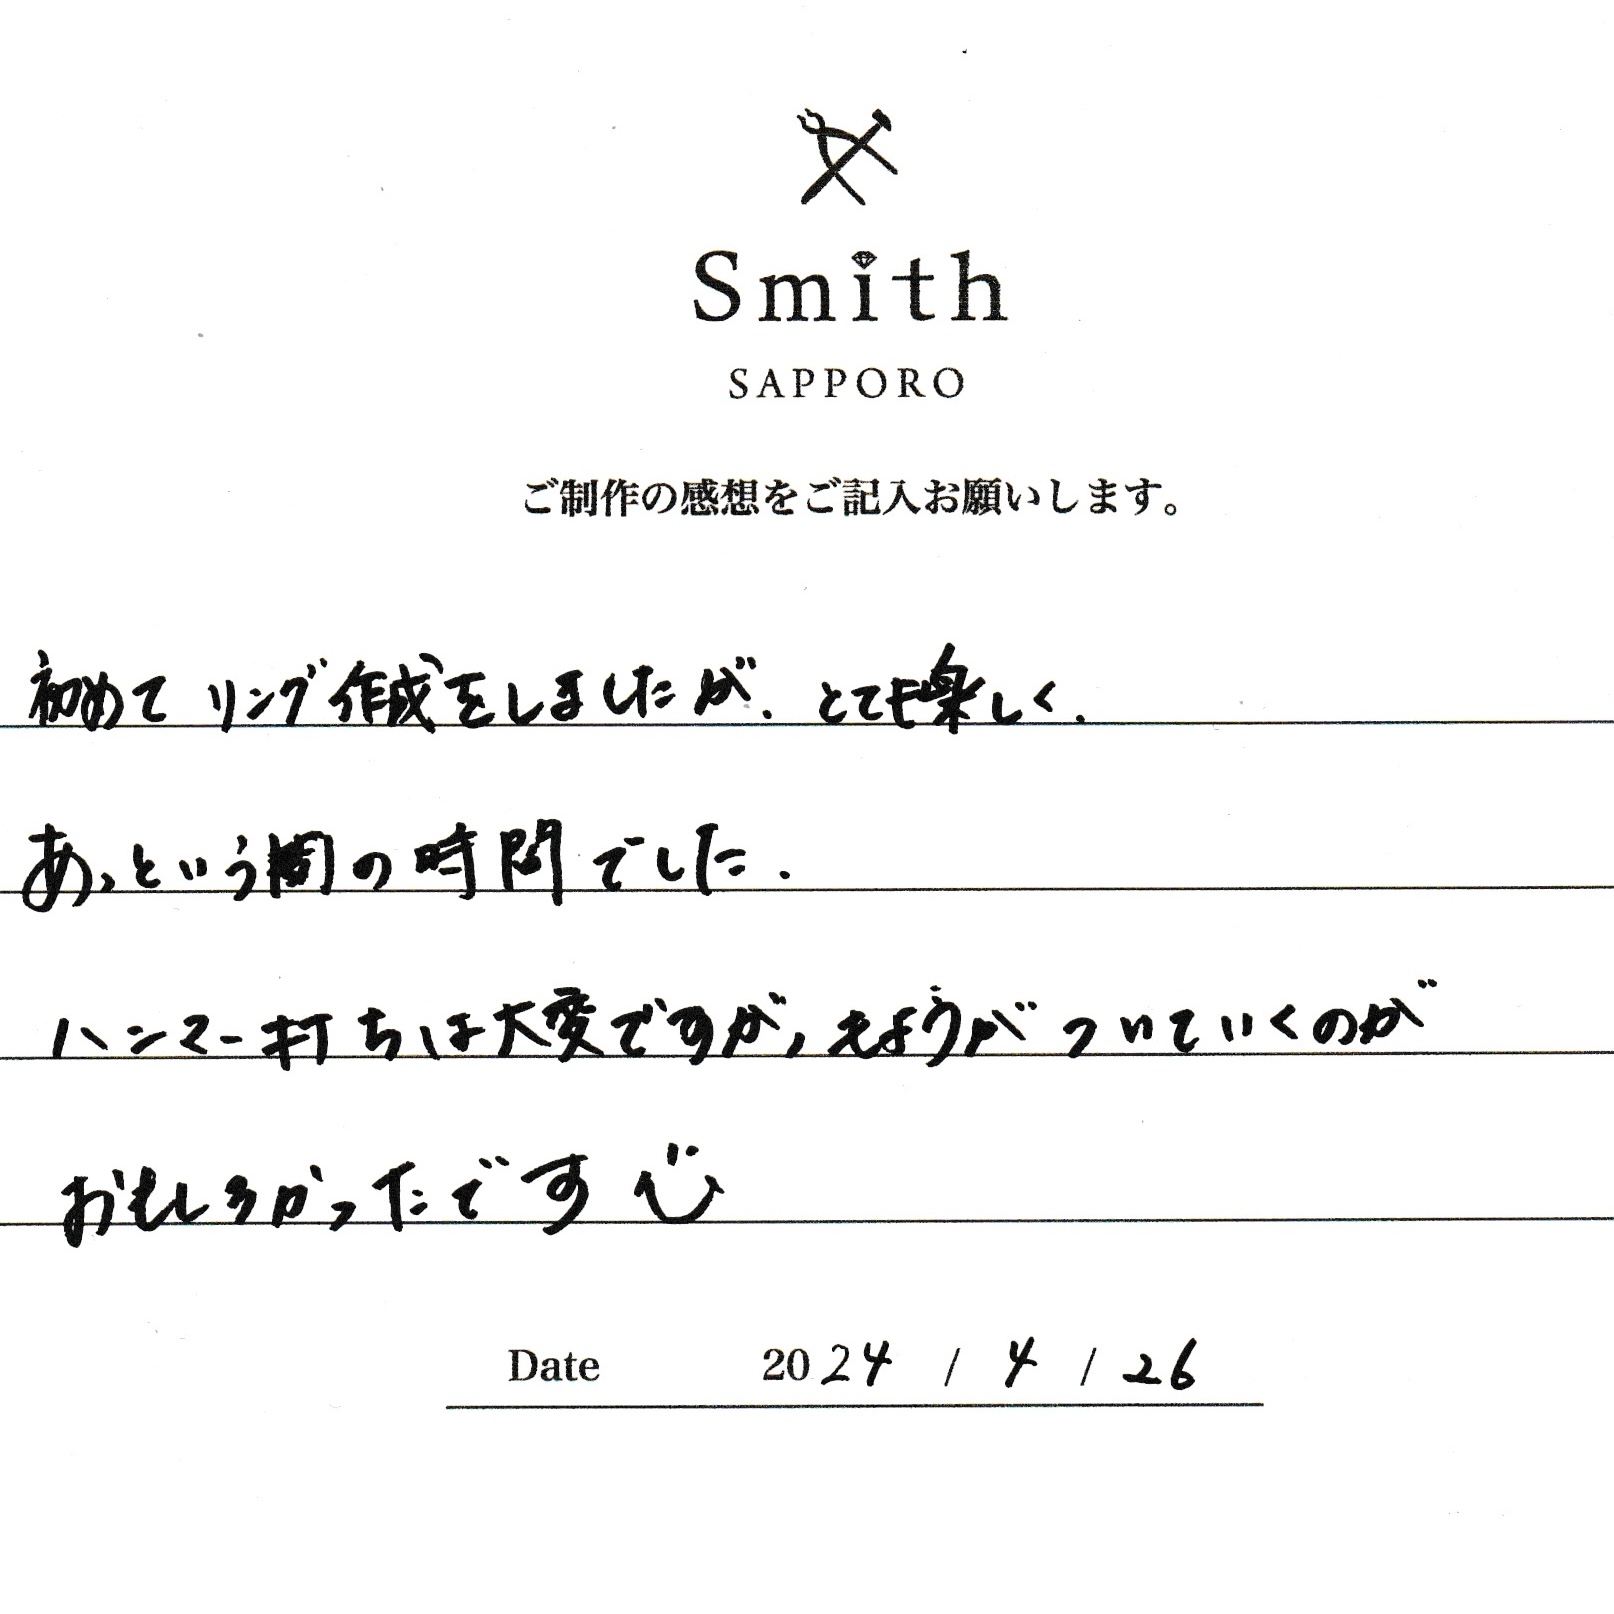 Smith
SAPPORO
ご制作の感想をご記入お願いします。
初めてリング作成をしましたが、とても楽しく、
あっという間の時間でした.
ハンマー打ちは大変ですが、もようがついていくのが
おもしろかったです
Date 2024 / 4 / 26